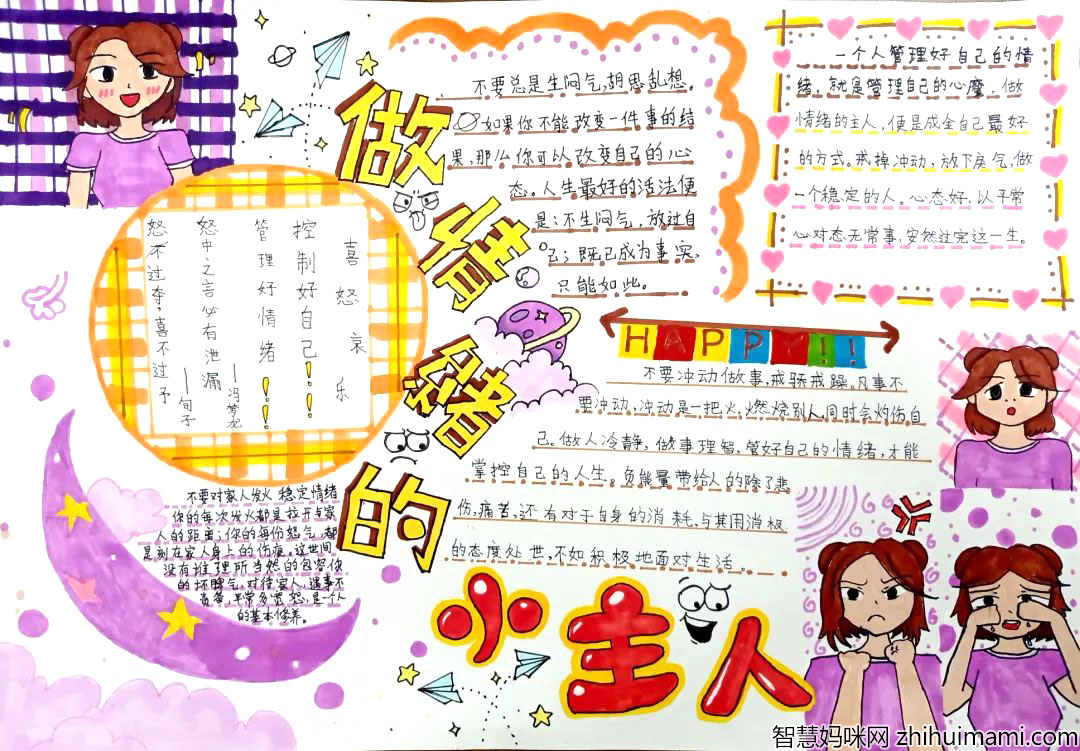 做情绪的
小主人
不要总是生闷气,胡思乱想。
如果你不能改变一件事的结
果,那么你可以改变自己的心
态。人生最好的活法便
是:不生闷气,放过自
己;既已成为事实,
只能如此。
一个人管理好自己的情
绪,就是管理自己的心魔,做
情绪的主人,便是成全自己最好
的方式。戒掉冲动,放下戾气,做
一个稳定的人。心态好,以平常
心对态无常事,安然过完这一生。
喜怒哀乐
控制好自己!!
管理好情绪!!
怒中之言必有泄漏
——冯梦龙
怒不过夺,喜不过予
——荀子
HAPPY!!
不要冲动做事,戒骄戒躁。凡事不
要冲动,冲动是一把火,燃烧别人同时会灼伤自
己。做人冷静,做事理智,管好自己的情绪,才能
掌控自己的人生。负能量带给人的除了悲
伤,痛苦,还有对于自身的消耗,与其用消极
的态度处世,不如积极地面对生活。
不要对家人发火 稳定情绪
你的每次发火都是拉开与家
人的距离;你的每份怒气,都
是刻在家人身上的伤痕。这世间
没有推理所当然的包容你
的坏脾气,对待家人,遇事不
责备,平常多宽恕,是一个人
的基本修养。
智慧妈咪网 zhihuimami.com